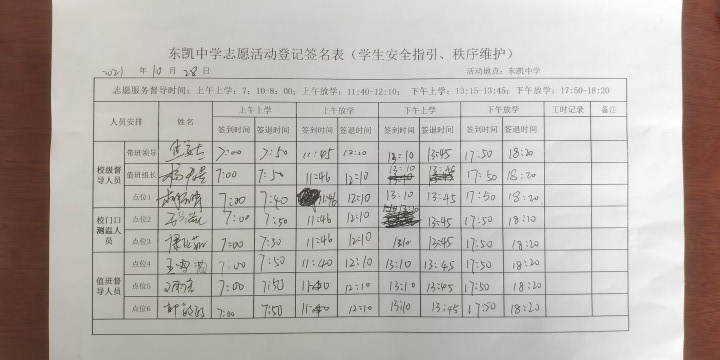 东凯中学志愿活动登记签名表（学生安全指引、秩序维护）
2021 年 10 月 28 日 活动地点：东凯中学
志愿服务督导时间：上午上学：7：10-8：00；上午放学：11:40-12:10； 下午上学：13:15-13:45； 下午放学：17:50-18:20
人员安排 姓名 上午上学 上午放学 下午上学 下午放学 工时记录 备注
签到时间 签退时间 签到时间 签退时间 签到时间 签退时间 签到时间 签退时间
校级督导人员 带班领导 7:00 7:50 11:45 12:10 13:10 13:45 17:50 18:20
值班组长 7:00 7:50 11:46 12:10 13:10 13:45 17:50 18:20
点位1 7:00 7:40 11:46 12:10 13:10 13:45 17:50 18:20
校门口测温人员 点位2 7:00 7:50 11:46 12:10 13:10 13:45 17:50 18:20
点位3 7:00 7:50 11:46 12:10 13:10 13:45 17:50 18:20
值班督导人员 点位4 7:00 7:50 11:40 12:10 13:10 13:45 17:50 18:20
点位5 7:00 7:50 11:40 12:10 13:10 13:45 17:50 18:20
点位6 7:00 7:50 11:40 12:10 13:10 13:45 17:50 18:20